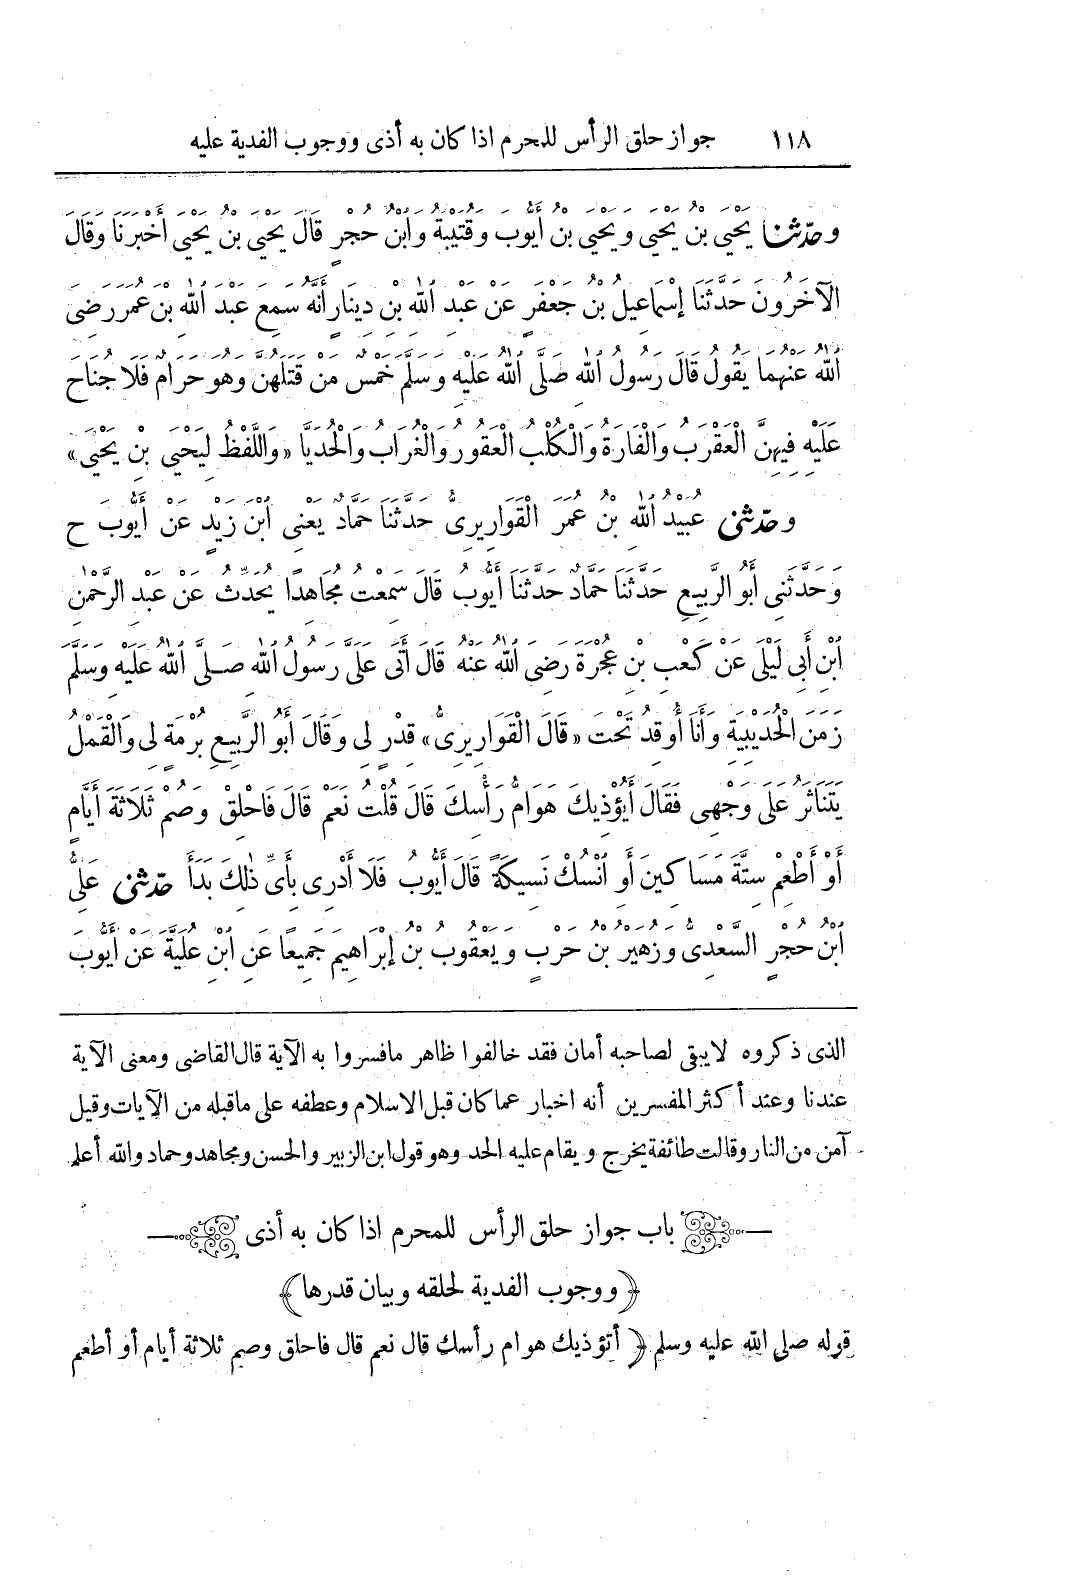 ١١٨ جواز حلق الرأس للمحرم اذا كان به أذى ووجوب الفدية عليه
وحدّثنا يَحْيَى بْنُ يَحْيَى وَيَحْيَى بْنُ أَيُّوبَ وَقُتَيْبَةُ وَابْنُ حُجْرٍ قَالَ يَحْيَى بْنُ يَحْيَى أَخْبَرَنَا وَقَالَ
الْآخَرُونَ حَدَّثَنَا إِسْمَاعِيلُ بْنُ جَعْفَرٍ عَنْ عَبْدِ اللهِ بْنِ دِينَارٍ أَنَّهُ سَمِعَ عَبْدَ اللهِ بْنَ عُمَرَ رَضِىَ
اللهُ عَنْهُمَا يَقُولُ قَالَ رَسُولُ اللهِ صَلَّى اللهُ عَلَيْهِ وَسَلَّمَ خَمْسٌ مَنْ قَتَلَهُنَّ وَهُوَ حَرَامٌ فَلَا جُنَاحَ
عَلَيْهِ فِيهِنَّ الْعَقْرَبُ وَالْفَارَةُ وَالْكَلْبُ الْعَقُورُ وَالْغُرَابُ وَالْحُدَيَّا «وَاللَّفْظُ لِيَحْيَى بْنِ يَحْيَى»
وحدّثنى عُبَيْدُ اللهِ بْنُ عُمَرَ الْقَوَارِيرِىُّ حَدَّثَنَا حَمَّادٌ يَعْنِى ابْنَ زَيْدٍ عَنْ أَيُّوبَ ح
وَحَدَّثَنِى أَبُو الرَّبِيعِ حَدَّثَنَا حَمَّادٌ حَدَّثَنَا أَيُّوبُ قَالَ سَمِعْتُ مُجَاهِدًا يُحَدِّثُ عَنْ عَبْدِ الرَّحْمٰنِ
ابْنِ أَبِى لَيْلَى عَنْ كَعْبِ بْنِ عُجْرَةَ رَضِىَ اللهُ عَنْهُ قَالَ أَتَى عَلَىَّ رَسُولُ اللهِ صَلَّى اللهُ عَلَيْهِ وَسَلَّمَ
زَمَنَ الْحُدَيْبِيَةِ وَأَنَا أُوقِدُ تَحْتَ «قَالَ الْقَوَارِيرِىُّ» قِدْرٍ لِى وَقَالَ أَبُو الرَّبِيعِ بُرْمَةٍ لِى وَالْقَمْلُ
يَتَنَاثَرُ عَلَى وَجْهِى فَقَالَ أَيُؤْذِيكَ هَوَامُّ رَأْسِكَ قَالَ قُلْتُ نَعَمْ قَالَ فَاحْلِقْ وَصُمْ ثَلَاثَةَ أَيَّامٍ
أَوْ أَطْعِمْ سِتَّةَ مَسَاكِينَ أَوِ انْسُكْ نَسِيكَةً قَالَ أَيُّوبُ فَلَا أَدْرِى بِأَىِّ ذٰلِكَ بَدَأَ حدّثنى عَلِىُّ
ابْنُ حُجْرٍ السَّعْدِىُّ وَزُهَيْرُ بْنُ حَرْبٍ وَيَعْقُوبُ بْنُ إِبْرَاهِيمَ جَمِيعًا عَنِ ابْنِ عُلَيَّةَ عَنْ أَيُّوبَ
الذى ذكروه لايبقى لصاحبه أمان فقد خالفوا ظاهر مافسروا به الآية قال القاضى ومعنى الآية
عندنا وعند أكثر المفسرين أنه اخبار عما كان قبل الاسلام وعطفه على ماقبله من الآيات وقيل
آمن من النار وقالت طائفة يخرج ويقام عليه الحد وهو قول ابن الزبير والحسن ومجاهد وحماد والله أعلم
باب جواز حلق الرأس للمحرم اذا كان به أذى
﴿ ووجوب الفدية لحلقه وبيان قدرها ﴾
قوله صلى الله عليه وسلم ﴿ أتؤذيك هوام رأسك قال نعم قال فاحلق وصم ثلاثة أيام أو أطعم